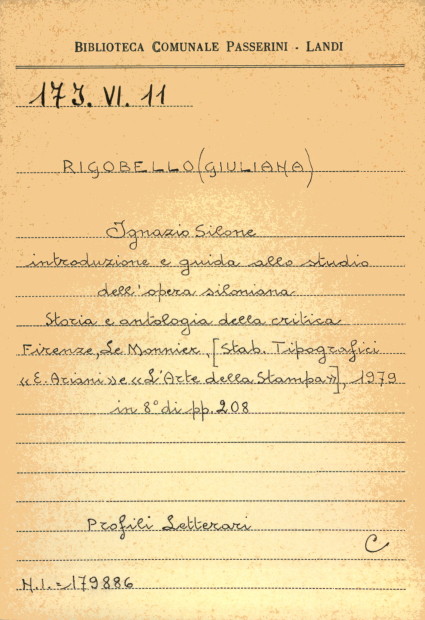 BIBLIOTECA COMUNALE PASSERINI - LANDI
173. VI. 11
RIGOBELLO (GIULIANA)
Ignazio Silone
introduzione e guida allo studio
dell'opera siloniana
Storia e antologia della critica
Firenze, Le Monnier, [Stab. Tipografici
«E. Ariani» e «L'Arte della Stampa»], 1979
in 8° di pp. 208
Profili Letterari
C
N.I. = 179886